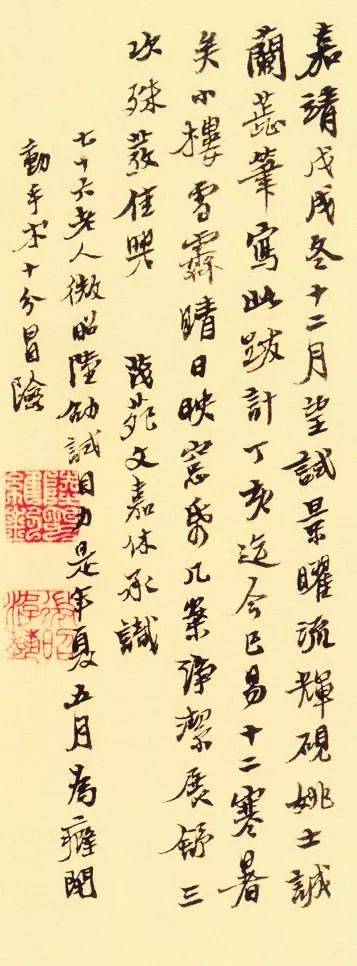 嘉靖戊戌冬十二月望試景曜流輝硯姚士誠
蘭蕊筆寫此跋計丁亥迄今已易十二寒暑
矣小樓雪霽晴日映窓昏几案淨潔展舒三
次殊發佳興 茂苑文嘉休承識
七十六老人微昭陸劬試目力是年夏五月為癰開
動手術十分冒險